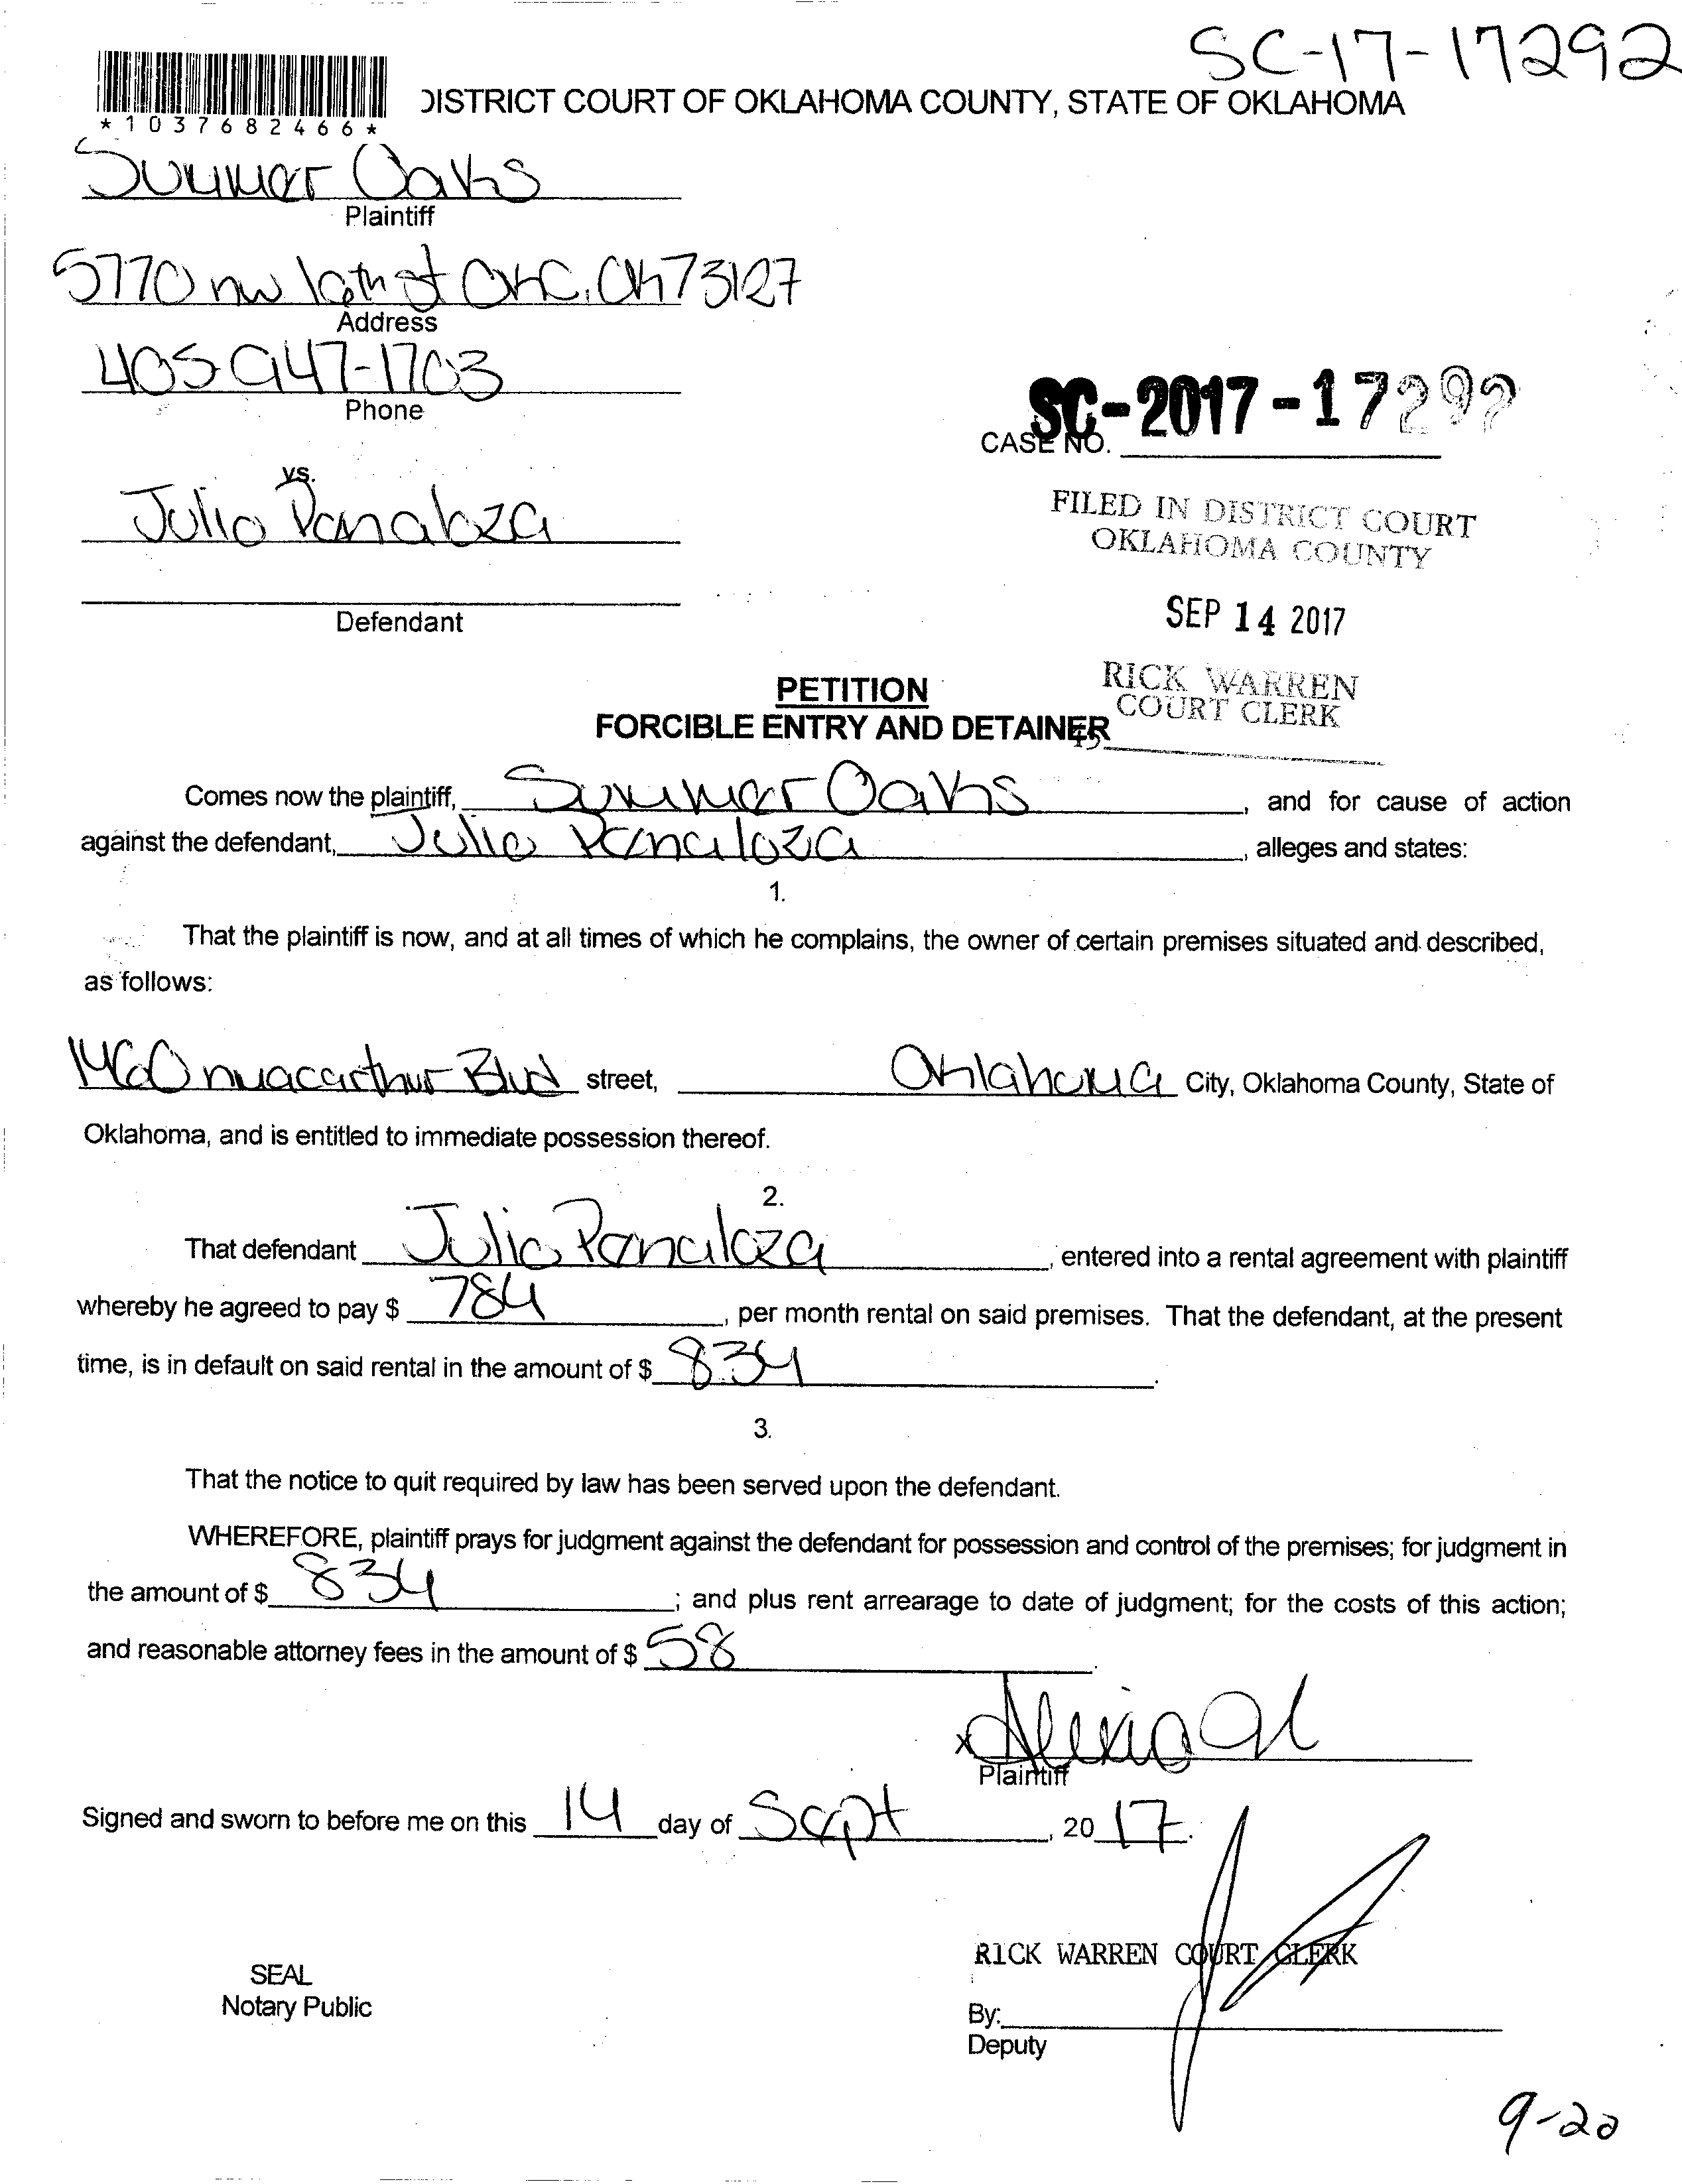 SC-17-17292
*1037682466*
DISTRICT COURT OF OKLAHOMA COUNTY, STATE OF OKLAHOMA
Summer Oaks
Plaintiff
5770 nw 16th st OKC, Ok 73127
Address
405-947-1703
Phone
SC-2017-17292
CASE NO.
vs.
Julio Penaloza
FILED IN DISTRICT COURT
OKLAHOMA COUNTY
Defendant
SEP 14 2017
RICK WARREN
COURT CLERK
PETITION
FORCIBLE ENTRY AND DETAINER
Comes now the plaintiff, Summer Oaks, and for cause of action
against the defendant, Julio Penaloza, alleges and states:
1.
That the plaintiff is now, and at all times of which he complains, the owner of certain premises situated and described,
as follows:
1460 n macarthur Blvd street, Oklahoma City, Oklahoma County, State of
Oklahoma, and is entitled to immediate possession thereof.
2.
That defendant Julio Penaloza, entered into a rental agreement with plaintiff
whereby he agreed to pay $ 784, per month rental on said premises. That the defendant, at the present
time, is in default on said rental in the amount of $ 834.
3.
That the notice to quit required by law has been served upon the defendant.
WHEREFORE, plaintiff prays for judgment against the defendant for possession and control of the premises; for judgment in
the amount of $ 834; and plus rent arrearage to date of judgment; for the costs of this action;
and reasonable attorney fees in the amount of $ 58.
x
Plaintiff
Signed and sworn to before me on this 14 day of Sept, 20 17.
RICK WARREN COURT CLERK
SEAL
Notary Public
By:
Deputy
9-20